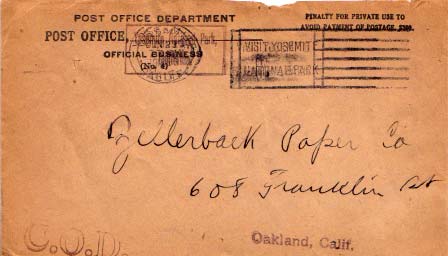 POST OFFICE DEPARTMENT
POST OFFICE, Park,
OFFICIAL BUSINESS
(No. 6)
PENALTY FOR PRIVATE USE TO
AVOID PAYMENT OF POSTAGE, $300.
VISIT YOSEMIT
NATIONAL PARK
Zellerback Paper Co
608 Franklin St
Oakland, Calif.
C.O.D.